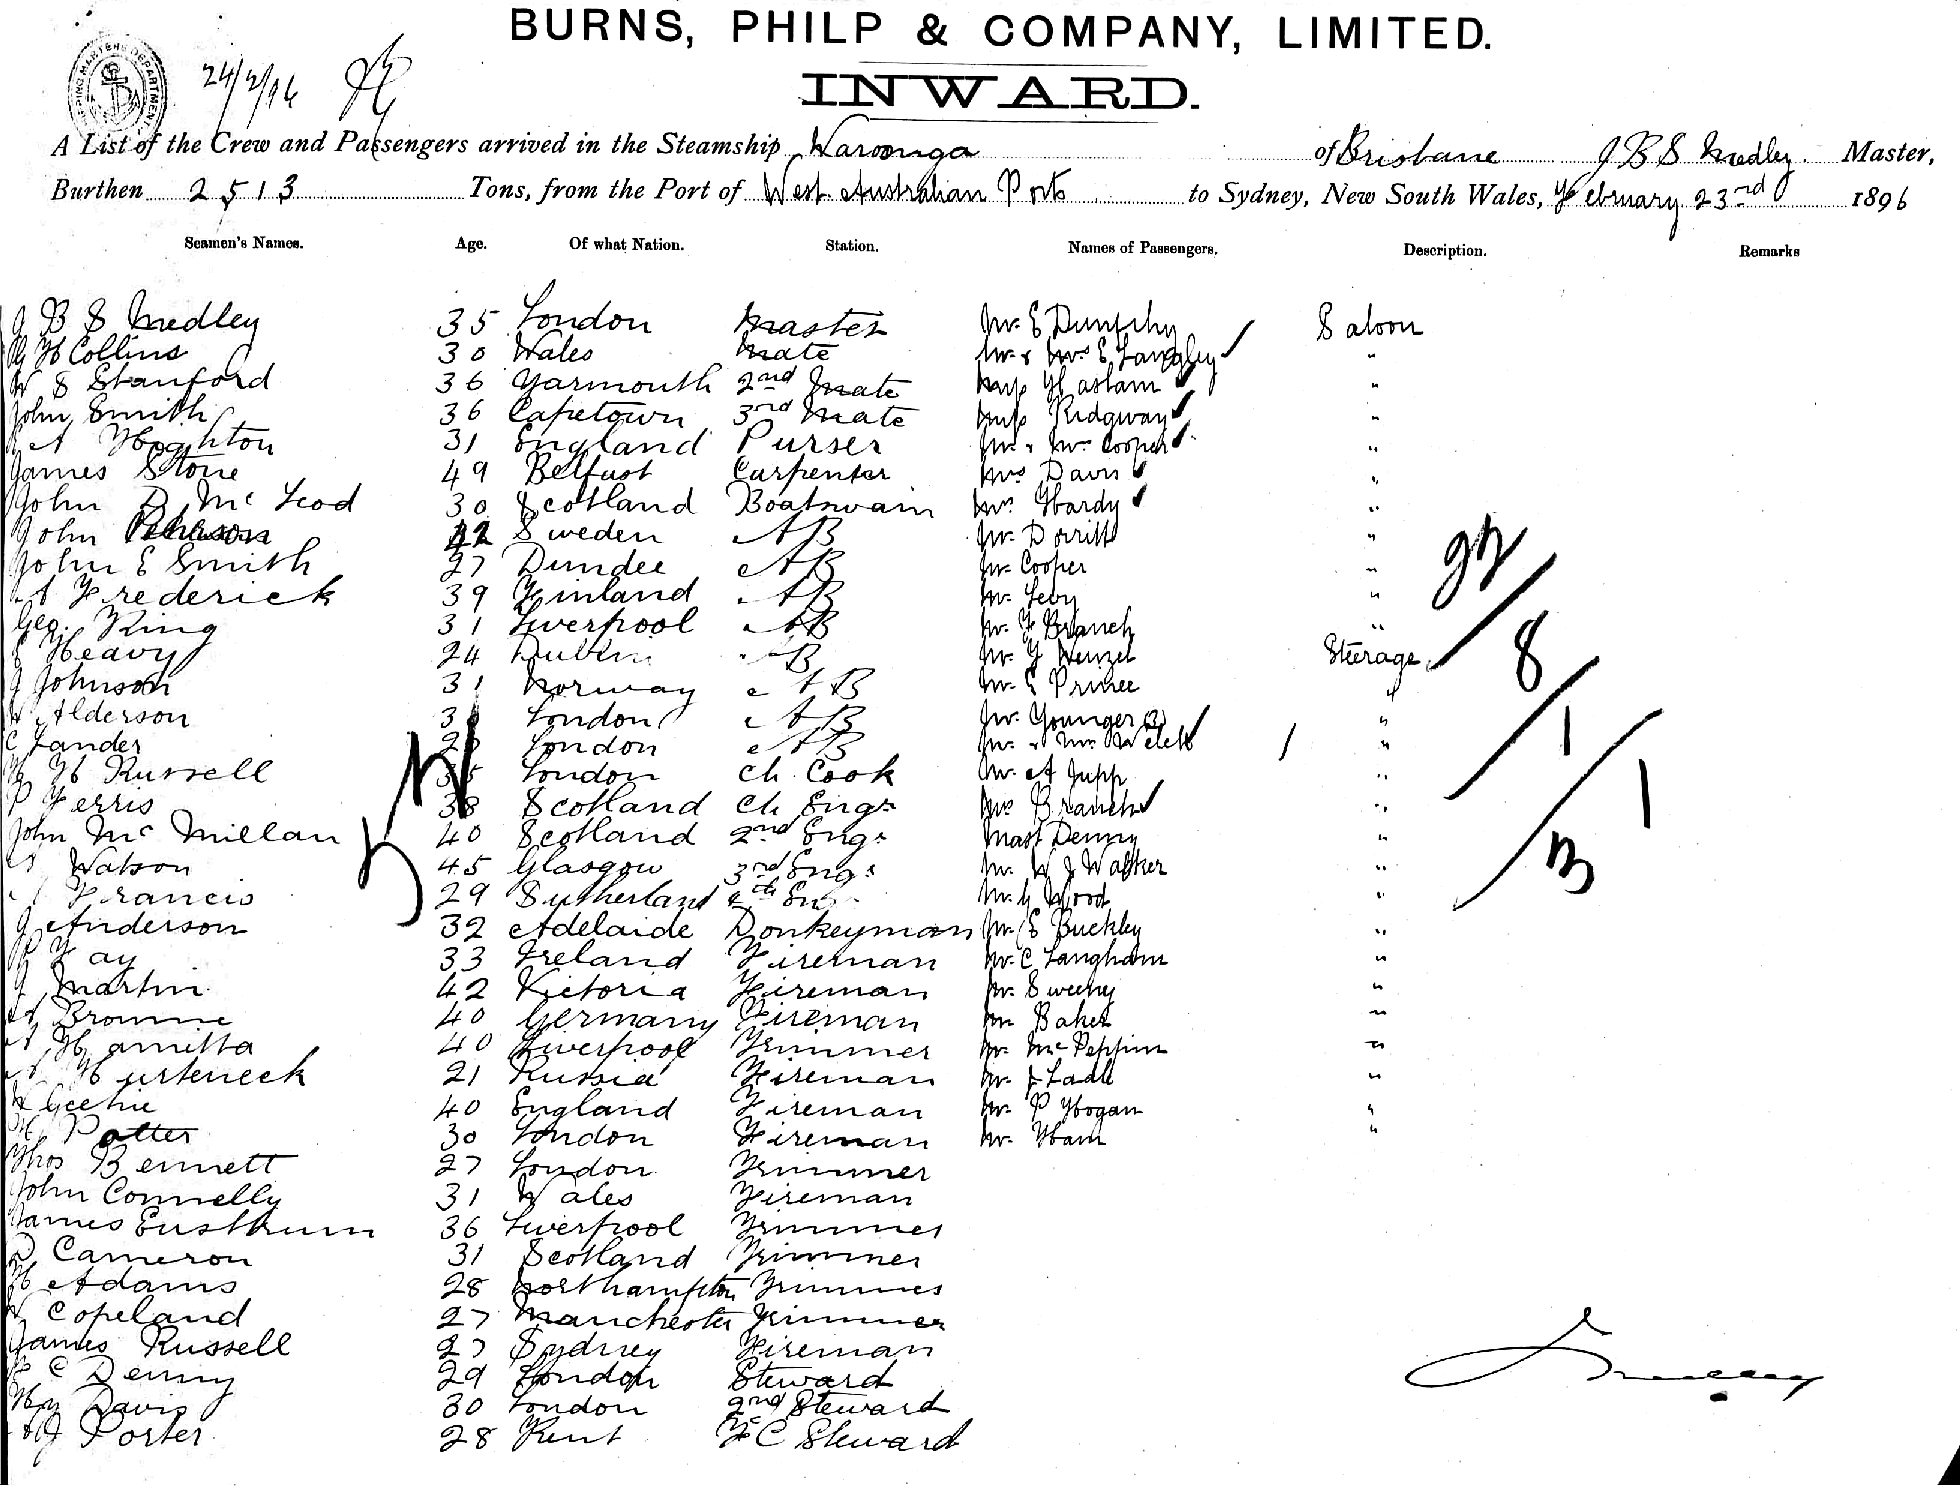 BURNS, PHILP & COMPANY, LIMITED.
24/2/96
INWARD.
A List of the Crew and Passengers arrived in the Steamship Waroonga of Brisbane J B S Medley. Master,
Burthen 2513 Tons, from the Port of West Australian Ports to Sydney, New South Wales, February 23rd 1896
Seamen's Names. Age. Of what Nation. Station. Names of Passengers. Description. Remarks
J B S Medley 35 London Master Mr. E Dunphy Saloon
H Collins 30 Wales Mate Mr & Mrs E Langley "
W S Stanford 36 Yarmouth 2nd Mate Miss Haslam "
John Smith 36 Capetown 3rd Mate Miss Ridgway "
A Hoghton 31 England Purser Mr & Mrs Cooper "
James Stone 49 Belfast Carpenter Mrs Davis "
John D Mc Leod 30 Scotland Boatswain Mrs Hardy "
John Peterson 42 Sweden AB Mr. Dorritt "
John E Smith 27 Dundee AB Mr Cooper "
A Frederick 39 Finland AB Mr. Levy "
Geo. King 31 Liverpool AB Mr. F Branch "
Heavy 24 Dublin AB Mr. G Wenzel Steerage
J Johnson 31 Norway AB Mr. E Prince "
Alderson London AB Mr. Younger (2) "
C Lander London AB Mr. & Mrs Welch 1 "
H Russell London Ch. Cook Mr. A Jupp "
P Ferris 38 Scotland Ch Engr Mrs Branch "
John Mc Millan 40 Scotland 2nd Engr Mast Denny "
Watson 45 Glasgow 3rd Engr Mr. W J Walker "
Francis 29 Sutherland 4th Engr Mr. G Wood "
J Anderson 32 Adelaide Donkeyman Mr. E Buckley "
Fay 33 Ireland Fireman Mr. C Langham "
J Martin 42 Victoria Fireman Mr. Sweeny "
Browne 40 Germany Fireman Mr Baker "
40 Liverpool Trimmer Mr. Mc Peppin "
21 Russia Fireman Mr. J Ladle "
Geehie 40 England Fireman Mr. P Hogan "
Potter 30 London Fireman Mr. Ham "
Thos Bennett 27 London Trimmer
John Connelly 31 Wales Fireman
James 36 Liverpool Trimmer
D Cameron 31 Scotland Trimmer
H Adams 28 Northampton Trimmer
Copeland 27 Manchester Trimmer
James Russell 27 Sydney Fireman
C Denny 29 London Steward
Hy Davis 30 London 2nd Steward
J Porter 28 Kent F C Steward
8
1
1
Medley